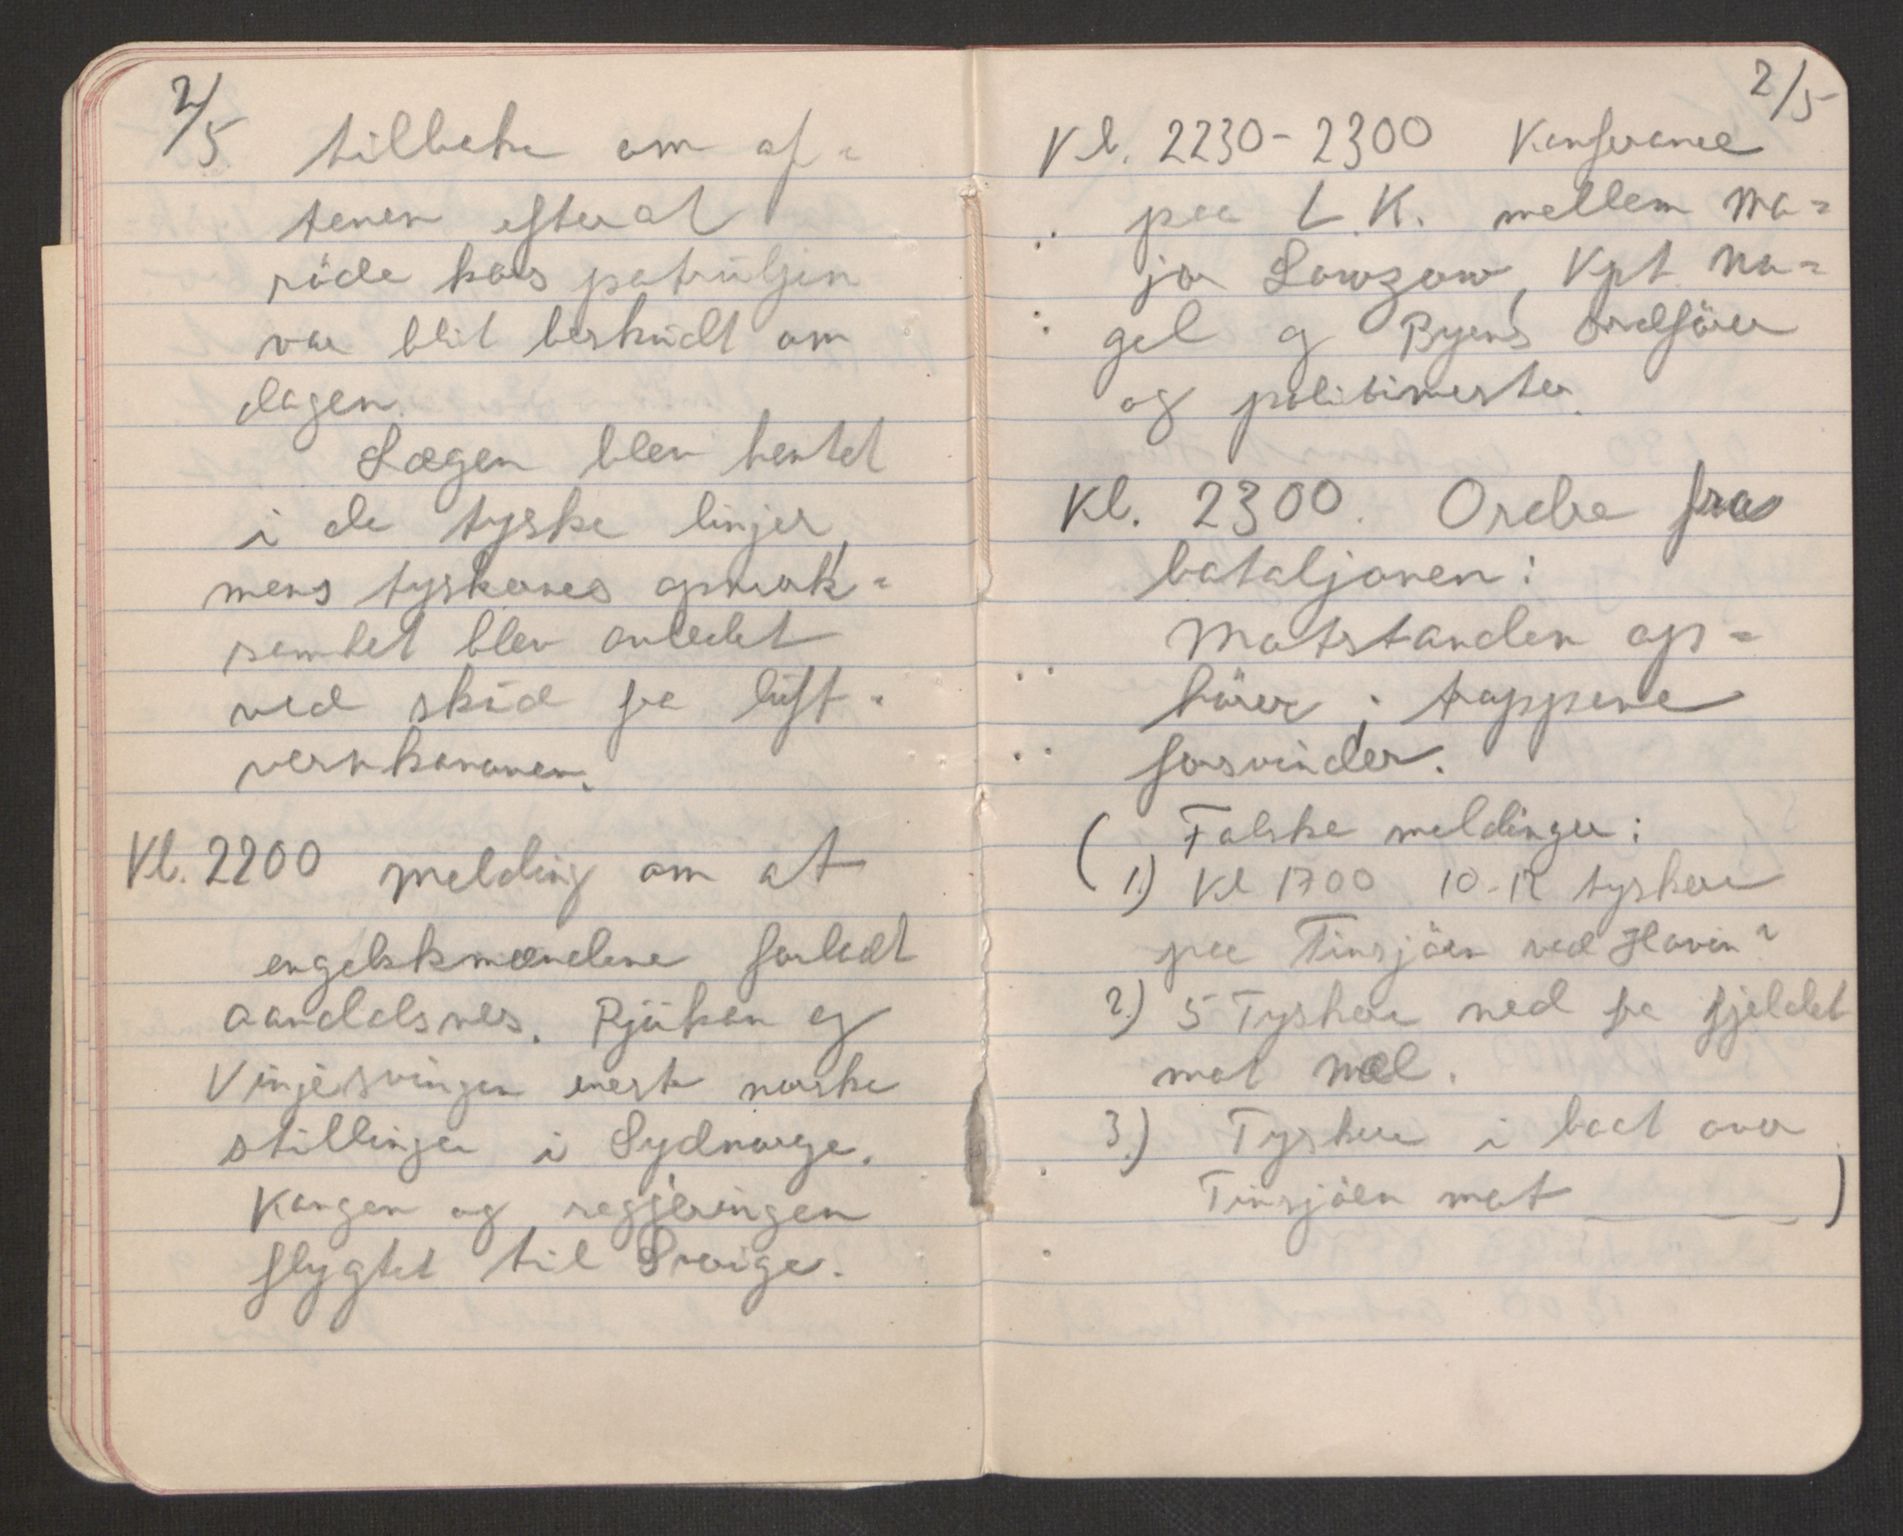 2/5
tilbake om af=
tenen efter at
röde kors patruljen
var blit beskudt om
dagen.
Lægen blev hentet
i de tyske linjer,
mens tyskernes opmerk=
somhet blev avledet
ved skud fra luft=
vernkanonen.
Kl. 2200 melding om at
engelskmændene forladt
Aandalsnes. Rjukan og
Vinjesvingen eneste norske
stillinger i Sydnorge.
Kongen og regjeringen
flygtet til Sverige.
2/5
Kl. 2230-2300 Konferance
paa L.K. mellem Ma=
jor Lowzow, Kpt. Na=
gel og Byens ordförer
og politimester.
Kl. 2300. Ordre fra
bataljonen:
Motstanden op=
hörer; troppene
forsvinder.
( Falske meldinger:
1.) Kl 1700 10-12 tyskere
paa Tinsjöen ved Hovin?
2.) 5 Tyskere ned fra fjeldet
mot Mæl.
3.) Tyskere i baat over
Tinsjöen mot _ _ _ )